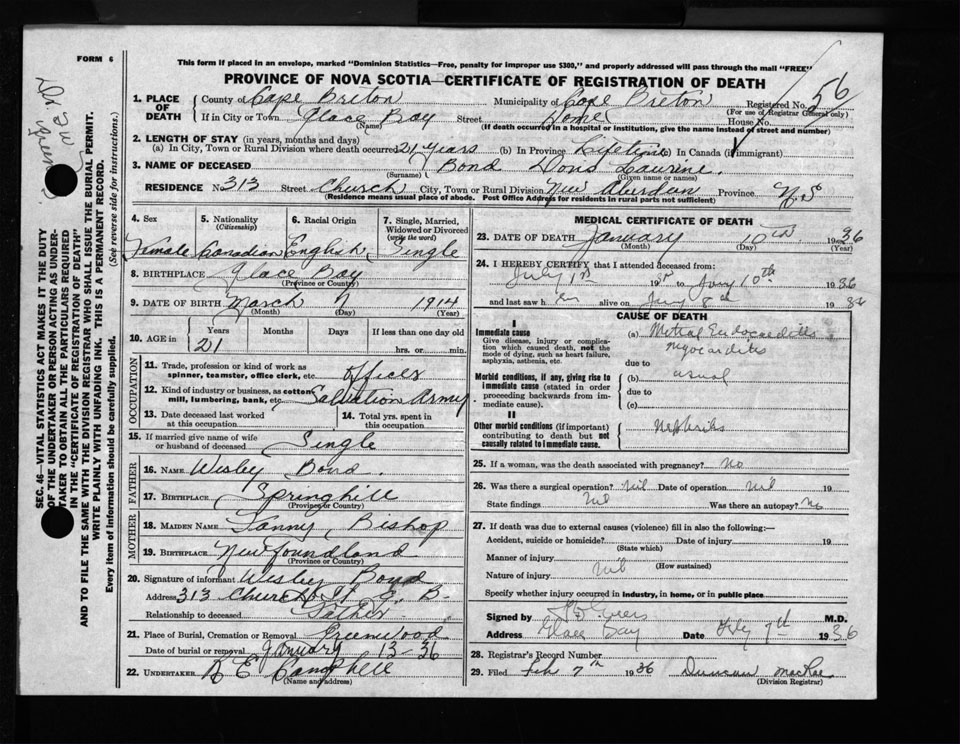 FORM 6
This form if placed in an envelope, marked "Dominion Statistics—Free, penalty for improper use $300," and properly addressed will pass through the mail "FREE"
PROVINCE OF NOVA SCOTIA—CERTIFICATE OF REGISTRATION OF DEATH
1. PLACE OF DEATH
County of Cape Briton Municipality of Cape Breton Registered No. 56
(For use of Registrar General only)
If in City or Town Glace Bay Street Home House No.
(Name) (If death occurred in a hospital or institution, give the name instead of street and number)
2. LENGTH OF STAY (in years, months and days)
(a) In City, Town or Rural Division where death occurred 21 years (b) In Province Lifetime (c) In Canada (if immigrant)
3. NAME OF DECEASED Bond Doris Laurine.
(Surname) (Given name or names)
RESIDENCE No 313 Street Church City, Town or Rural Division New Aberdeen Province N.S
(Residence means usual place of abode. Post Office Address for residents in rural parts not sufficient)
4. Sex 5. Nationality (Citizenship) 6. Racial Origin 7. Single, Married, Widowed or Divorced (write the word)
Female Canadian English Single
8. BIRTHPLACE Glace Bay
(Province or Country)
9. DATE OF BIRTH March 1914
(Month) (Day) (Year)
10. AGE in Years Months Days If less than one day old
21 hrs. or min.
OCCUPATION
11. Trade, profession or kind of work as spinner, teamster, office clerk, etc. officer
12. Kind of industry or business, as cotton mill, lumbering, bank, etc. Salvation Army.
13. Date deceased last worked at this occupation 14. Total yrs. spent in this occupation
15. If married give name of wife or husband of deceased Single
FATHER
16. NAME Wesley Bond.
17. BIRTHPLACE Springhill
(Province or Country)
MOTHER
18. MAIDEN NAME Fanny Bishop
19. BIRTHPLACE Newfoundland
(Province or Country)
20. Signature of informant Wesley Bond
Address 313 Church St G. B.
Relationship to deceased Father
21. Place of Burial, Cremation or Removal Greenwood
Date of burial or removal January 13-36
22. UNDERTAKER R E Campbell
(Name and address)
MEDICAL CERTIFICATE OF DEATH
23. DATE OF DEATH January 10th. 1936
(Month) (Day) (Year)
24. I HEREBY CERTIFY that I attended deceased from:
July 1st 19 to Jany 10th 1936
and last saw her alive on Jany 8th 1936
CAUSE OF DEATH
I
Immediate cause
Give disease, injury or complication which caused death, not the mode of dying, such as heart failure, asphyxia, asthenia, etc.
(a) Mitral Endocarditis
Myocarditis
due to
Morbid conditions, if any, giving rise to immediate cause (stated in order proceeding backwards from immediate cause).
(b) usual
due to
(c)
II
Other morbid conditions (if important) contributing to death but not causally related to immediate cause.
Nephritis
25. If a woman, was the death associated with pregnancy? No
26. Was there a surgical operation? Nil Date of operation Nil 19
State findings Nil Was there an autopsy? No
27. If death was due to external causes (violence) fill in also the following:—
Accident, suicide or homicide? Date of injury 19
(State which)
Manner of injury
(How sustained)
Nature of injury Nil
Specify whether injury occurred in industry, in home, or in public place
Signed by M.D.
Address Glace Bay Date 7th 1936
28. Registrar's Record Number
29. Filed Feb 7th 1936 Duncan MacRae
(Division Registrar)
SEC. 46—VITAL STATISTICS ACT MAKES IT THE DUTY
OF THE UNDERTAKER OR PERSON ACTING AS UNDER-
TAKER TO OBTAIN ALL THE PARTICULARS REQUIRED
IN THE "CERTIFICATE OF REGISTRATION OF DEATH"
AND TO FILE THE SAME WITH THE DIVISION REGISTRAR WHO SHALL ISSUE THE BURIAL PERMIT.
WRITE PLAINLY WITH UNFADING INK. THIS IS A PERMANENT RECORD.
Every item of information should be carefully supplied. (See reverse side for instructions.)